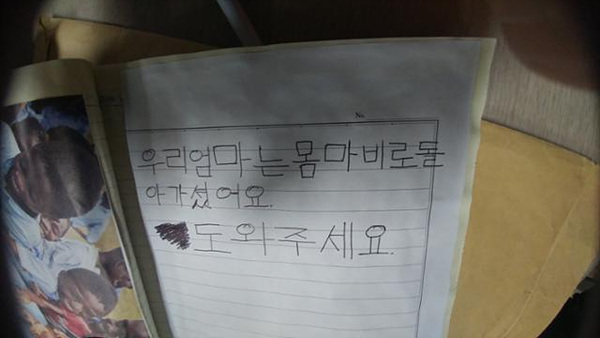 No.
우리엄마는 몸마비로돌
아가섰어요.
도와주세요.